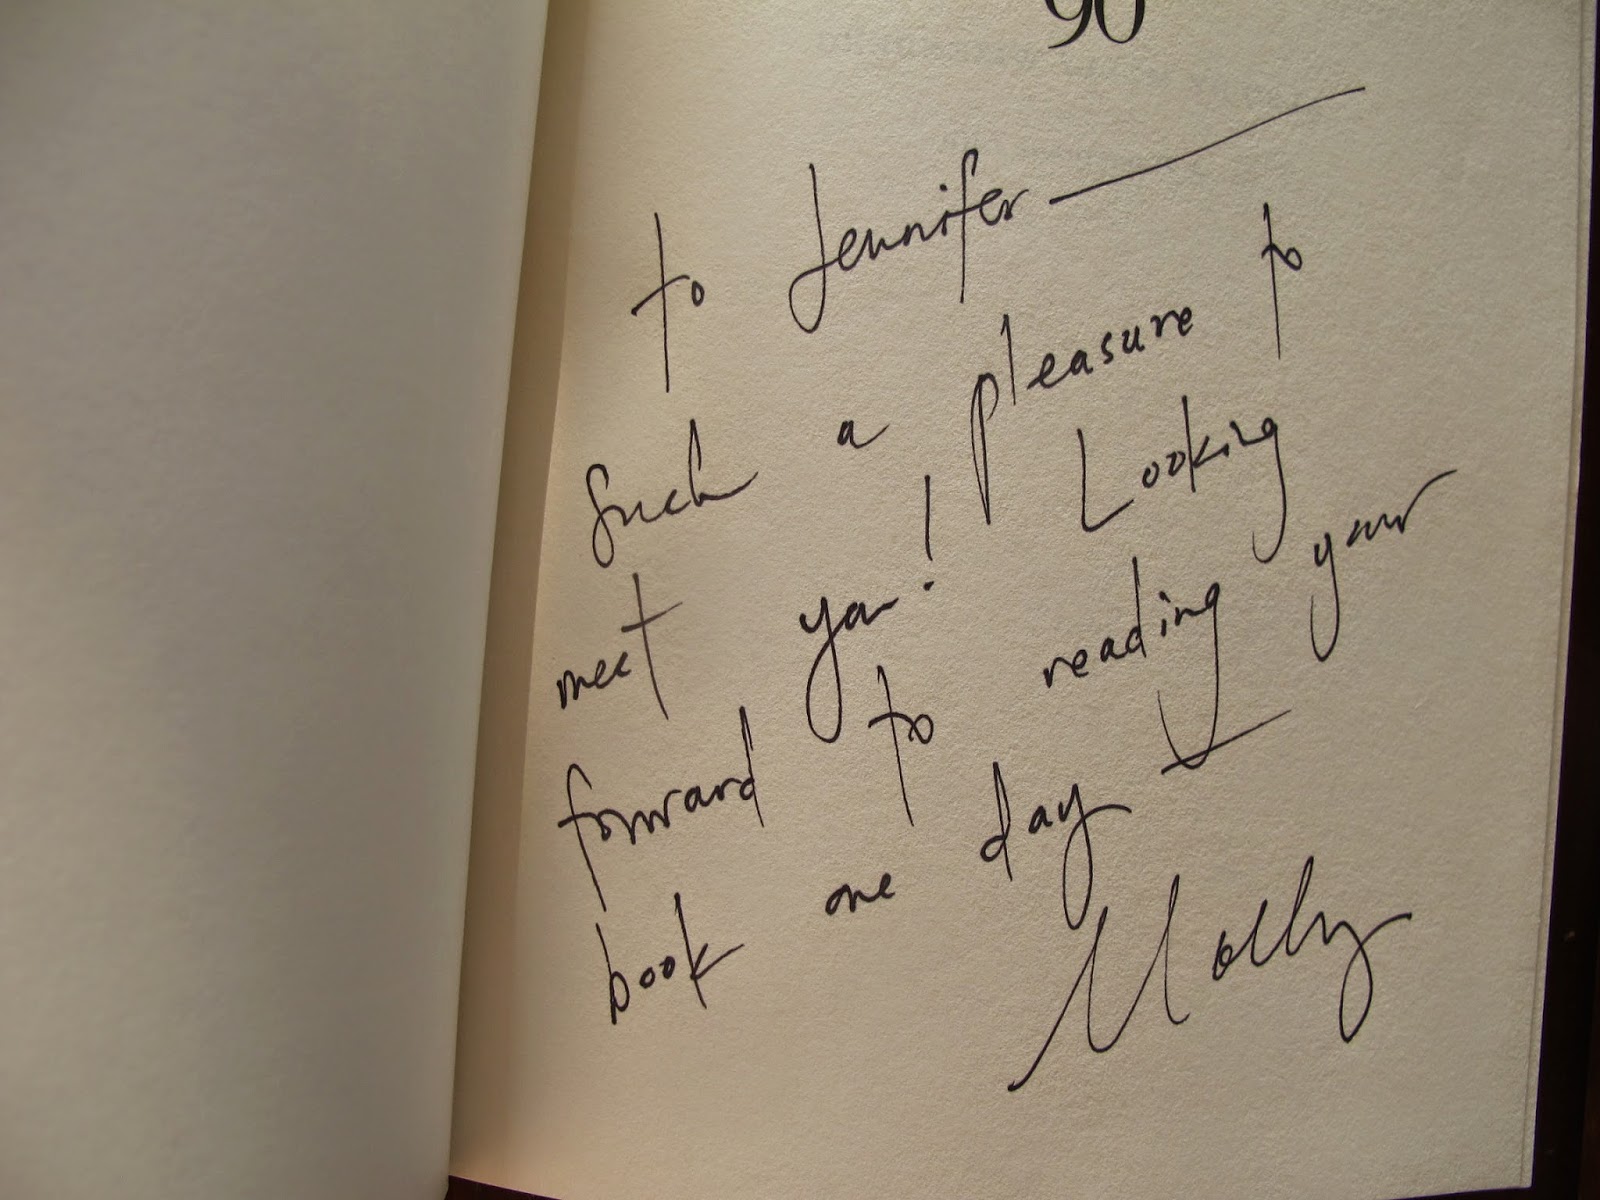 90
to Jennifer —
Such a pleasure to
meet you! Looking
forward to reading your
book one day —
Molly